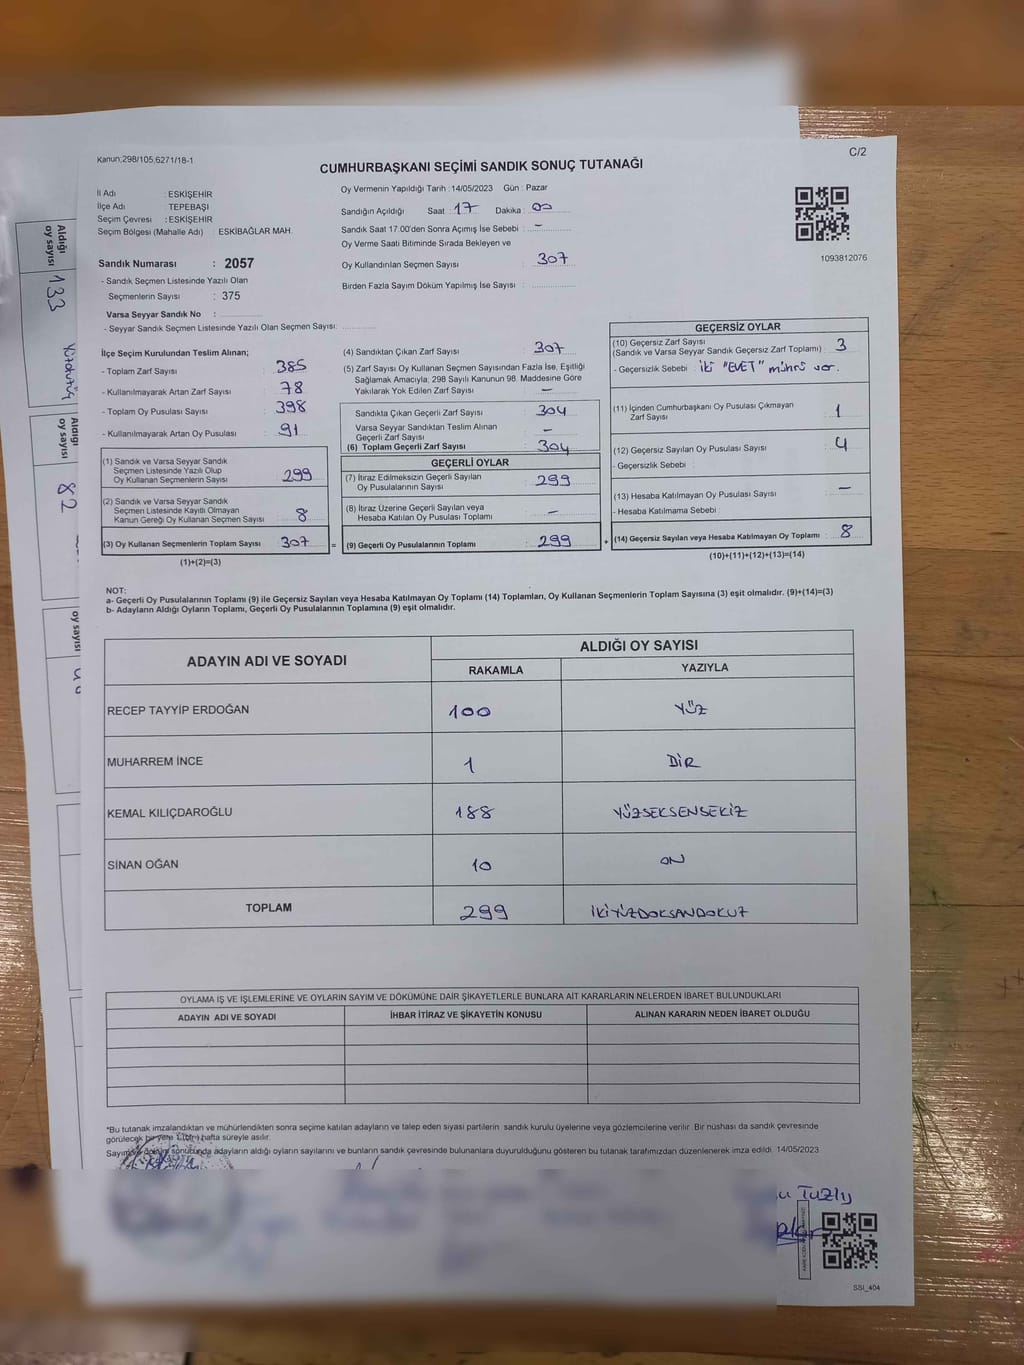 Kanun;298/105;6271/18-1
C/2
CUMHURBAŞKANI SEÇİMİ SANDIK SONUÇ TUTANAĞI
İl Adı : ESKİŞEHİR
İlçe Adı : TEPEBAŞI
Seçim Çevresi : ESKİŞEHİR
Seçim Bölgesi (Mahalle Adı) : ESKİBAĞLAR MAH.
Sandık Numarası : 2057
- Sandık Seçmen Listesinde Yazılı Olan
Seçmenlerin Sayısı : 375
Varsa Seyyar Sandık No :
- Seyyar Sandık Seçmen Listesinde Yazılı Olan Seçmen Sayısı:
Oy Vermenin Yapıldığı Tarih : 14/05/2023 Gün : Pazar
Sandığın Açıldığı Saat : 17 Dakika : 00
Sandık Saat 17:00'den Sonra Açımış İse Sebebi : -
Oy Verme Saati Bitiminde Sırada Bekleyen ve
Oy Kullandırılan Seçmen Sayısı : 307
Birden Fazla Sayım Döküm Yapılmış İse Sayısı :
1093812076
İlçe Seçim Kurulundan Teslim Alınan;
- Toplam Zarf Sayısı : 385
- Kullanılmayarak Artan Zarf Sayısı : 78
- Toplam Oy Pusulası Sayısı : 398
- Kullanılmayarak Artan Oy Pusulası : 91
(1) Sandık ve Varsa Seyyar Sandık
Seçmen Listesinde Yazılı Olup
Oy Kullanan Seçmenlerin Sayısı : 299
(2) Sandık ve Varsa Seyyar Sandık
Seçmen Listesinde Kayıtlı Olmayan
Kanun Gereği Oy Kullanan Seçmen Sayısı : 8
(3) Oy Kullanan Seçmenlerin Toplam Sayısı : 307
(1)+(2)=(3)
(4) Sandıktan Çıkan Zarf Sayısı : 307
(5) Zarf Sayısı Oy Kullanan Seçmen Sayısından Fazla İse, Eşitliği
Sağlamak Amacıyla; 298 Sayılı Kanunun 98. Maddesine Göre
Yakılarak Yok Edilen Zarf Sayısı : -
Sandıkta Çıkan Geçerli Zarf Sayısı : 304
Varsa Seyyar Sandıktan Teslim Alınan
Geçerli Zarf Sayısı : -
(6) Toplam Geçerli Zarf Sayısı : 304
GEÇERLİ OYLAR
(7) İtiraz Edilmeksizin Geçerli Sayılan
Oy Pusulalarının Sayısı : 299
(8) İtiraz Üzerine Geçerli Sayılan veya
Hesaba Katılan Oy Pusulası Toplamı : -
= (9) Geçerli Oy Pusulalarının Toplamı : 299
GEÇERSİZ OYLAR
(10) Geçersiz Zarf Sayısı
(Sandık ve Varsa Seyyar Sandık Geçersiz Zarf Toplamı) : 3
- Geçersizlik Sebebi : iki "EVET" mührü var.
(11) İçinden Cumhurbaşkanı Oy Pusulası Çıkmayan
Zarf Sayısı : 1
(12) Geçersiz Sayılan Oy Pusulası Sayısı : 4
- Geçersizlik Sebebi :
(13) Hesaba Katılmayan Oy Pusulası Sayısı : -
- Hesaba Katılmama Sebebi :
+ (14) Geçersiz Sayılan veya Hesaba Katılmayan Oy Toplamı : 8
(10)+(11)+(12)+(13)=(14)
NOT:
a- Geçerli Oy Pusulalarının Toplamı (9) ile Geçersiz Sayılan veya Hesaba Katılmayan Oy Toplamı (14) Toplamları, Oy Kullanan Seçmenlerin Toplam Sayısına (3) eşit olmalıdır. (9)+(14)=(3)
b- Adayların Aldığı Oyların Toplamı, Geçerli Oy Pusulalarının Toplamına (9) eşit olmalıdır.
ADAYIN ADI VE SOYADI
ALDIĞI OY SAYISI
RAKAMLA YAZIYLA
RECEP TAYYİP ERDOĞAN 100 YÜZ
MUHARREM İNCE 1 BİR
KEMAL KILIÇDAROĞLU 188 YÜZSEKSENSEKİZ
SİNAN OĞAN 10 ON
TOPLAM 299 İKİYÜZDOKSANDOKUZ
OYLAMA İŞ VE İŞLEMLERİNE VE OYLARIN SAYIM VE DÖKÜMÜNE DAİR ŞİKAYETLERLE BUNLARA AİT KARARLARIN NELERDEN İBARET BULUNDUKLARI
ADAYIN ADI VE SOYADI İHBAR İTİRAZ VE ŞİKAYETİN KONUSU ALINAN KARARIN NEDEN İBARET OLDUĞU
*Bu tutanak imzalandıktan ve mühürlendikten sonra seçime katılan adayların ve talep eden siyasi partilerin sandık kurulu üyelerine veya gözlemcilerine verilir. Bir nüshası da sandık çevresinde
görülecek bir yere 1 (bir) hafta süreyle asılır.
Sayım ve döküm sonucunda adayların aldığı oyların sayılarını ve bunların sandık çevresinde bulunanlara duyurulduğunu gösteren bu tutanak tarafımızdan düzenlenerek imza edildi. 14/05/2023
Tuzly
SSI_404
Aldığı
oy sayısı
133
Aldığı
oy sayısı
82
oy sayısı